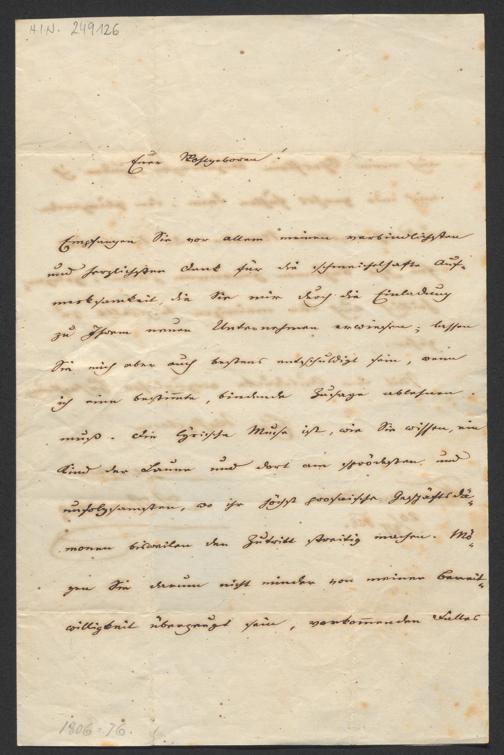 H.I.N. 249126
Euer Wohlgeboren!
Empfangen Sie vor allem meinen verbindlichsten
und herzlichsten Dank für die schmeichelhafte Auf-
merksamkeit, die Sie mir durch die Einladung
zu Ihrem neuen Unternehmen erwiesen; lassen
Sie mich aber auch bestens entschuldigt sein, wenn
ich eine bestimmte, bindende Zusage ablehnen
muß. Die lyrische Muse ist, wie Sie wissen, ein
Kind der Laune und dort am sprödesten und
unfolgsamsten, wo ihr höchst prosaische Geschäftsdä-
monen bisweilen den Zutritt streitig machen. Mö-
gen Sie darum nicht minder von meiner Bereit-
willigkeit überzeugt sein, vorkommenden Falles
1806-76.